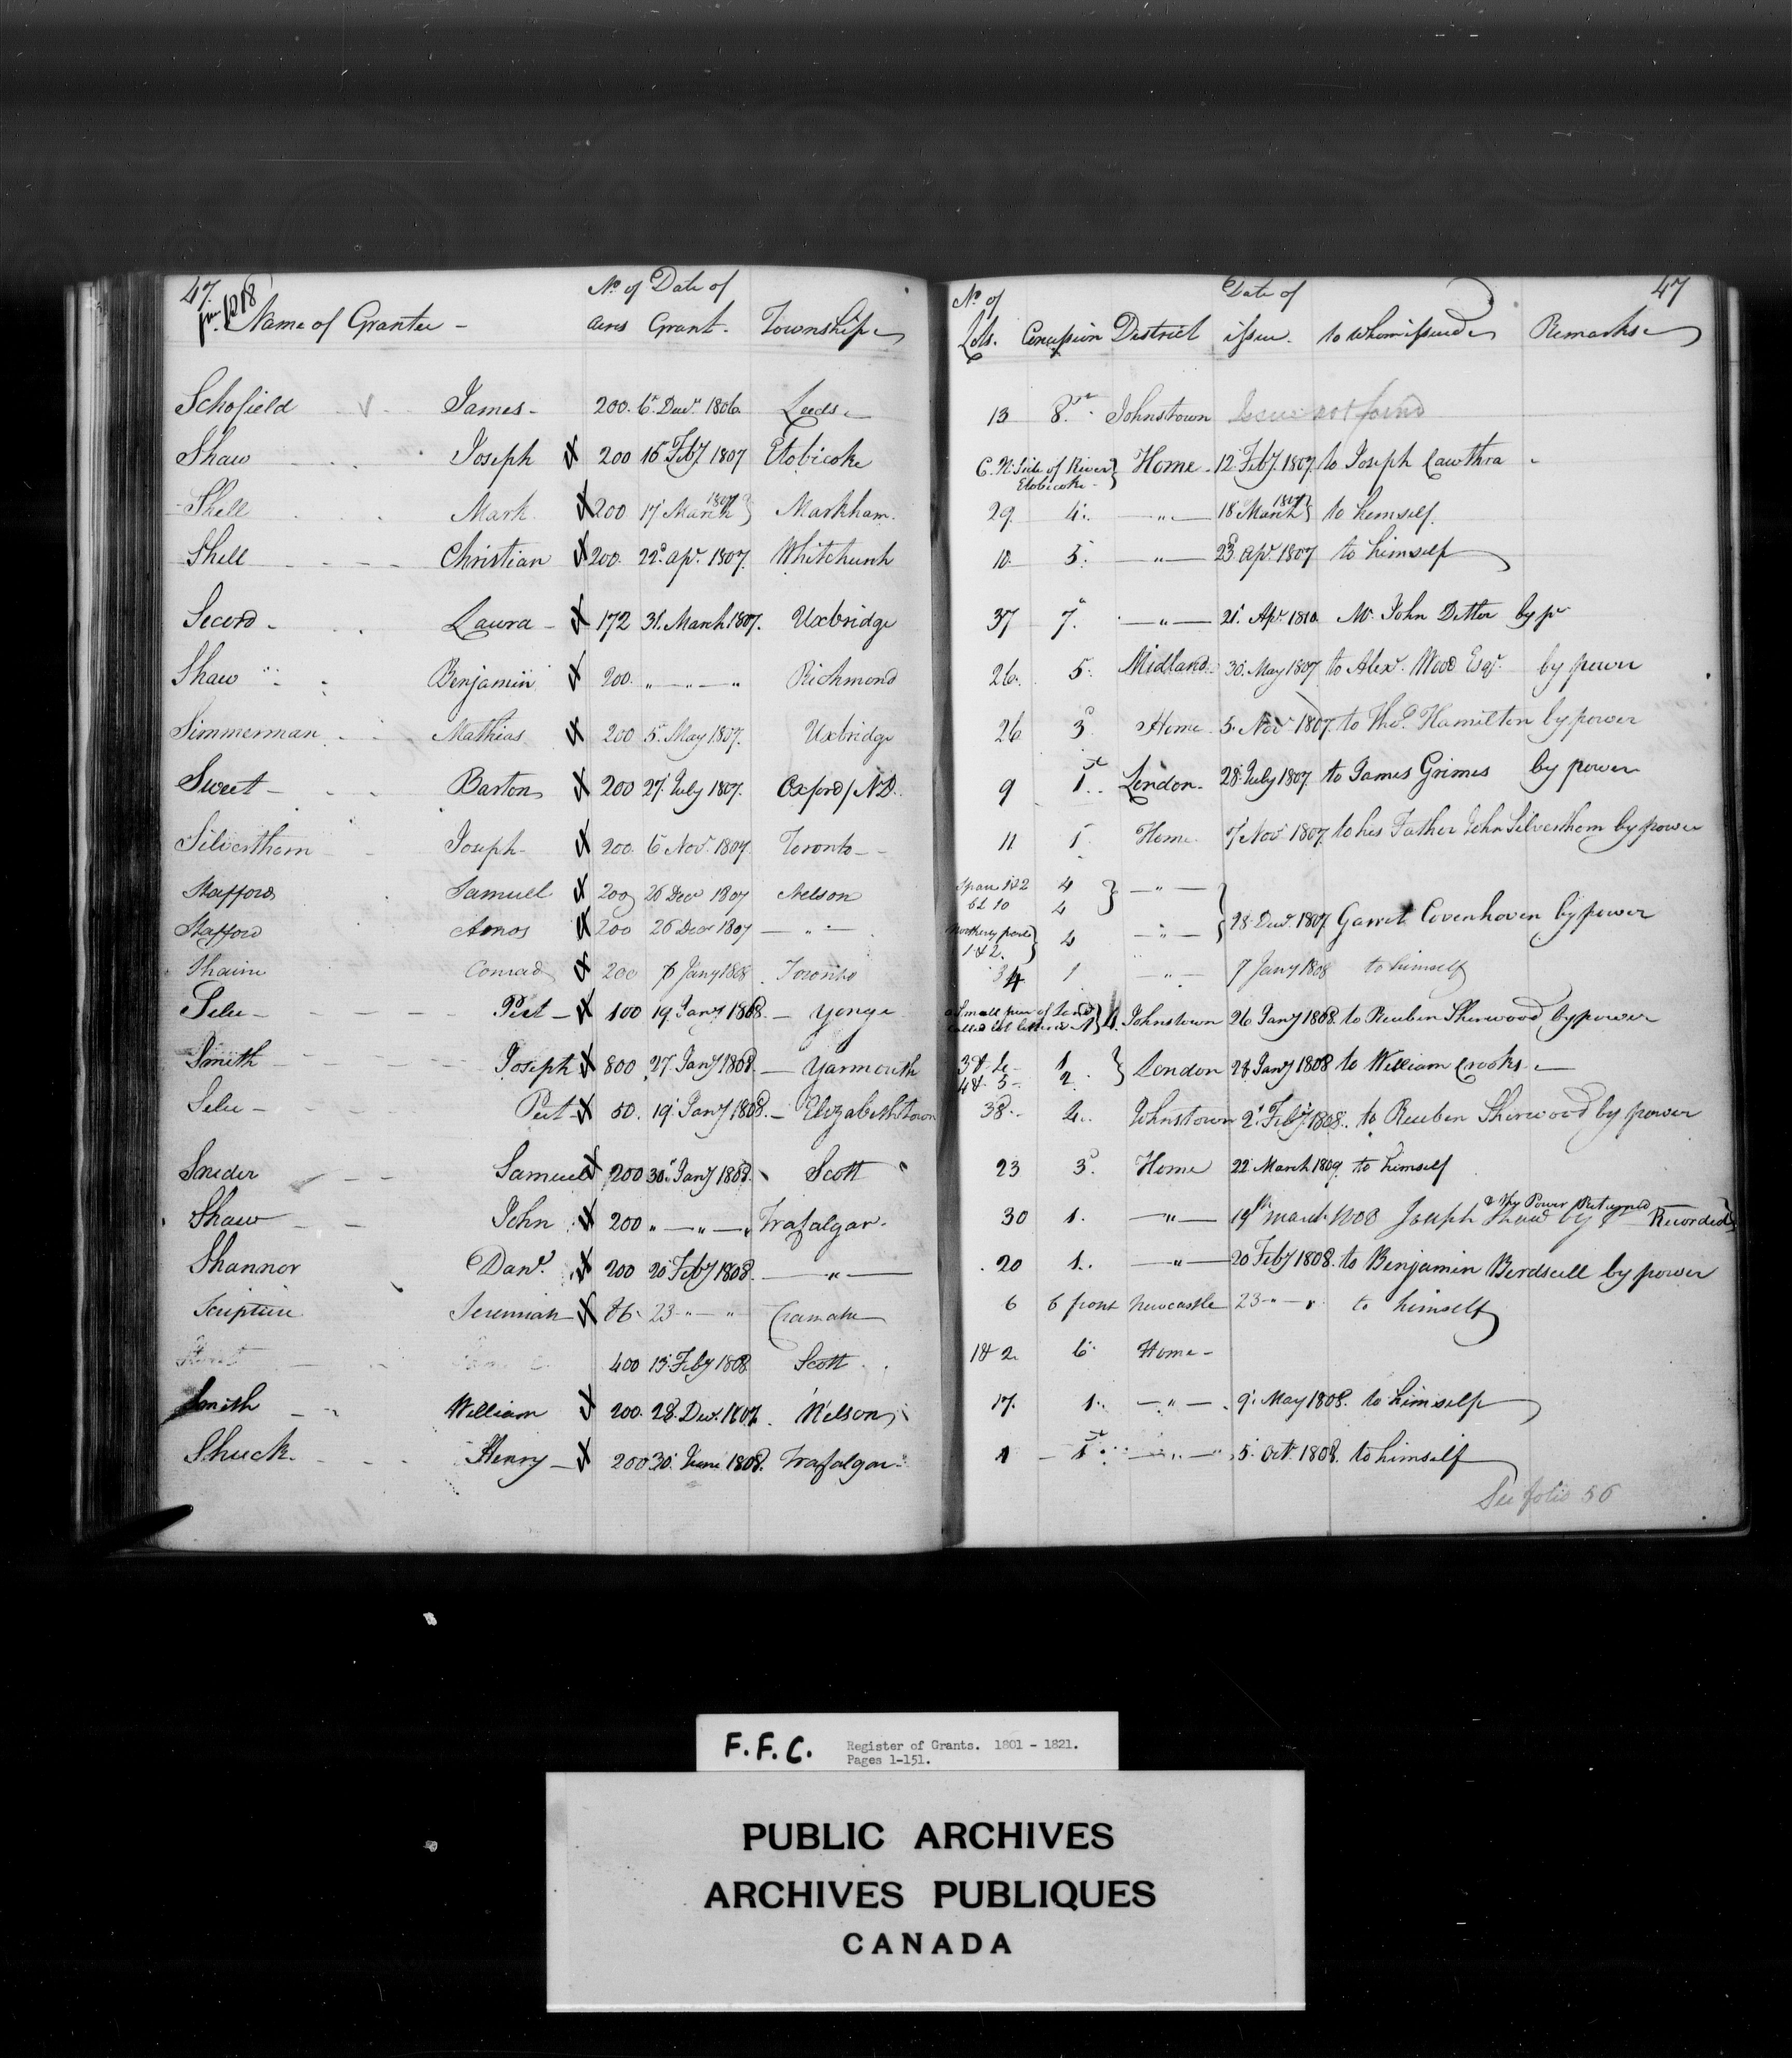 47.
Name of Grantee - No. of acres Date of Grant. Township
Schofield James - 200. 6 Decr. 1806 Leeds
Shaw Joseph 200 16 Feby. 1807 Etobicoke
Shell Mark 200 17 March 1807 Markham.
Shell Christian 200. 22d. apr. 1807. Whitchurch
Secord - Laura - 172 31. March 1807. Uxbridge
Shaw Benjamin 200. " — " — " Richmond
Simmerman Mathias 200 5. May 1807. Uxbridge
Sweet - Barton 200 27. July 1807. Oxford / N.D.
Silverthorn Joseph 200. 6 Nov. 1807. Toronto
Stafford Samuel 200 26 Decr 1807 Nelson
Stafford Amos 200 26 Decr 1807 — " —
Conrad 200 Jany 1808. Toronto
Selee - Peet - 100 19. Jany 1808. - Yonge
Smith Joseph 800 27. Jany 1808. - Yarmouth
Selee - Peet 50. 19. Jany 1808. - Elizabethtown
Snider Samuel 200 30. Jany 1808. Scott
Shaw John 200 " — " — " Trafalgar.
Shannor Danl. 200 20 Feby 1808. — " —
Scripture Jeremiah 86 23 " — " Cramahe
400 13. Feby 1808 Scott
Smith William 200. 28. Decr. 1807. Nelson
Shuck. Henry - 200 30. June 1808. Trafalgar
47
No. of Lots. Concession District Date of issue. to whom issued Remarks
13 8th. Johnstown Issue not found
C. N. Side of River Etobicoke - Home - 12. Feby. 1807. to Joseph Cawthra
29 4. — " — 18 March 1807 to himself.
10. 5. — " — 23d. apr. 1807 to himself
37 7. — " — 21. Apr. 1810. Mr. John Detter by pr
26. 5. Midland. 30. May 1807 to Alexr. Wood Esqr. by power
26 3d. Home. 5. Nov. 1807. to Thos. Hamilton by power
9 1st. London. 28. July 1807. to James Grimes by power
11 1 Home. 7 Nov. 1807. to his Father John Silverthorn by power
4 } — " —
bt 10 4
Northerly parts 1 & 2. } 4 — " — 28. Decr. 1807. Garret Covenhoven by power
34 1 — " — 7 Jany 1808 to himself
a Small piece of Land called Lot letter A } Johnstown 26 Jany 1808. to Reuben Sherwood by power
3 & 4 - 1
4 & 5 - 2. } London 28 Jany 1808 to William Crooks.
38. Johnstown 2. Feby. 1808. to Reuben Sherwood by power
23 3d. Home 22. March 1809. to himself
30 1. — " — 19th March 1808 Joseph Shaw by Power Returned Recorded
20 1. — " — 20 Feby 1808. to Benjamin Berdsell by power
6 6 front Newcastle 23 - " — " to himself
1 & 2. 6. Home -
17. 1. — " — 9. May 1808. to himself
1 1st — " — 5. Oct. 1808. to himself
See folio 56
F.F.C. Register of Grants. 1801 - 1821.
Pages 1-151.
PUBLIC ARCHIVES
ARCHIVES PUBLIQUES
CANADA